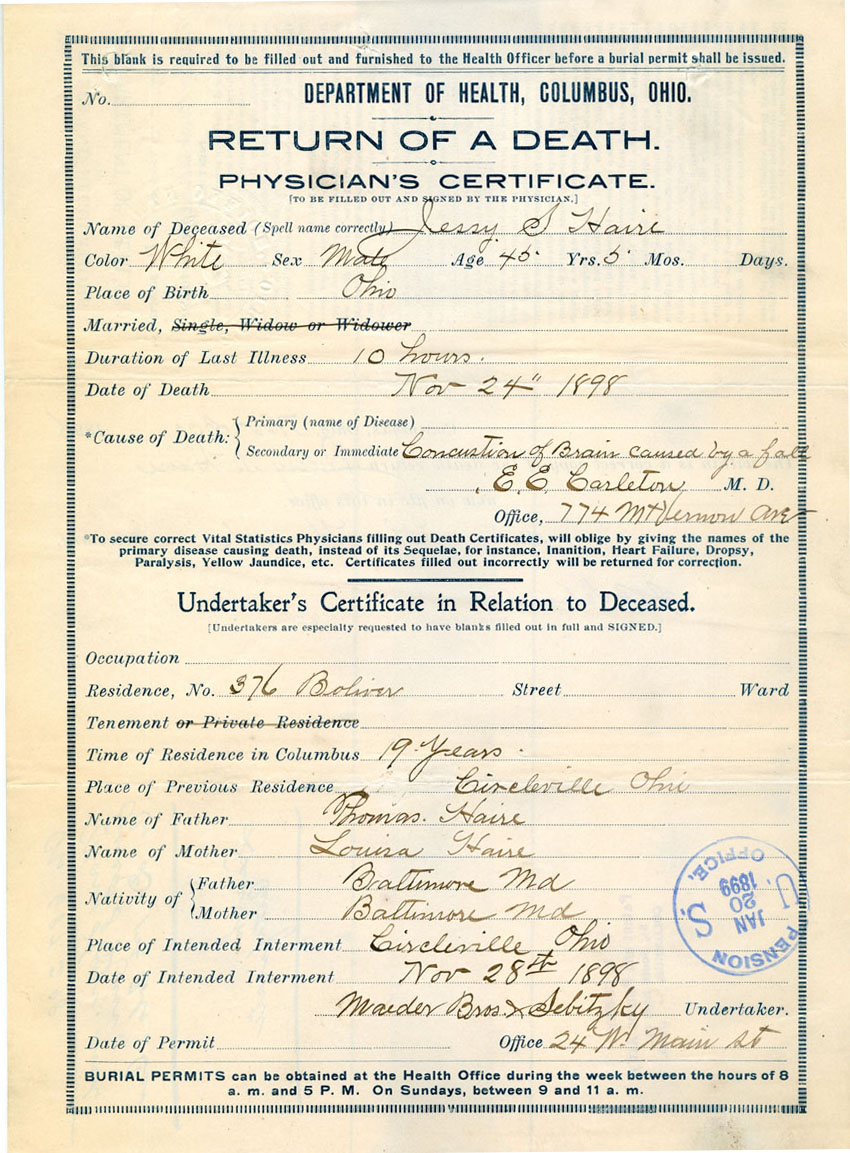 This blank is required to be filled out and furnished to the Health Officer before a burial permit shall be issued.
No. DEPARTMENT OF HEALTH, COLUMBUS, OHIO.
RETURN OF A DEATH.
PHYSICIAN'S CERTIFICATE.
[TO BE FILLED OUT AND SIGNED BY THE PHYSICIAN.]
Name of Deceased (Spell name correctly) Jessy S Haire
Color White Sex Male Age 45 Yrs. 5 Mos. Days.
Place of Birth Ohio
Married, Single, Widow or Widower
Duration of Last Illness 10 hours.
Date of Death Nov 24" 1898
*Cause of Death: Primary (name of Disease)
Secondary or Immediate Concustion of Brain caused by a fall
E. E. Carleton M. D.
Office, 774 Mt Vernon Ave
*To secure correct Vital Statistics Physicians filling out Death Certificates, will oblige by giving the names of the
primary disease causing death, instead of its Sequelae, for instance, Inanition, Heart Failure, Dropsy,
Paralysis, Yellow Jaundice, etc. Certificates filled out incorrectly will be returned for correction.
Undertaker's Certificate in Relation to Deceased.
[Undertakers are especialty requested to have blanks filled out in full and SIGNED.]
Occupation
Residence, No. 376 Boliver Street Ward
Tenement or Private Residence
Time of Residence in Columbus 19 Years.
Place of Previous Residence Circleville Ohio
Name of Father Thomas. Haire
Name of Mother Louisa Haire
Nativity of Father Baltimore Md
Mother Baltimore Md
Place of Intended Interment Circleville Ohio
Date of Intended Interment Nov 28th 1898
Maeder Bros & Sebitzky Undertaker.
Date of Permit Office 24 W. Main St
U. S. PENSION OFFICE.
JAN
20
1899
BURIAL PERMITS can be obtained at the Health Office during the week between the hours of 8
a. m. and 5 P. M. On Sundays, between 9 and 11 a. m.